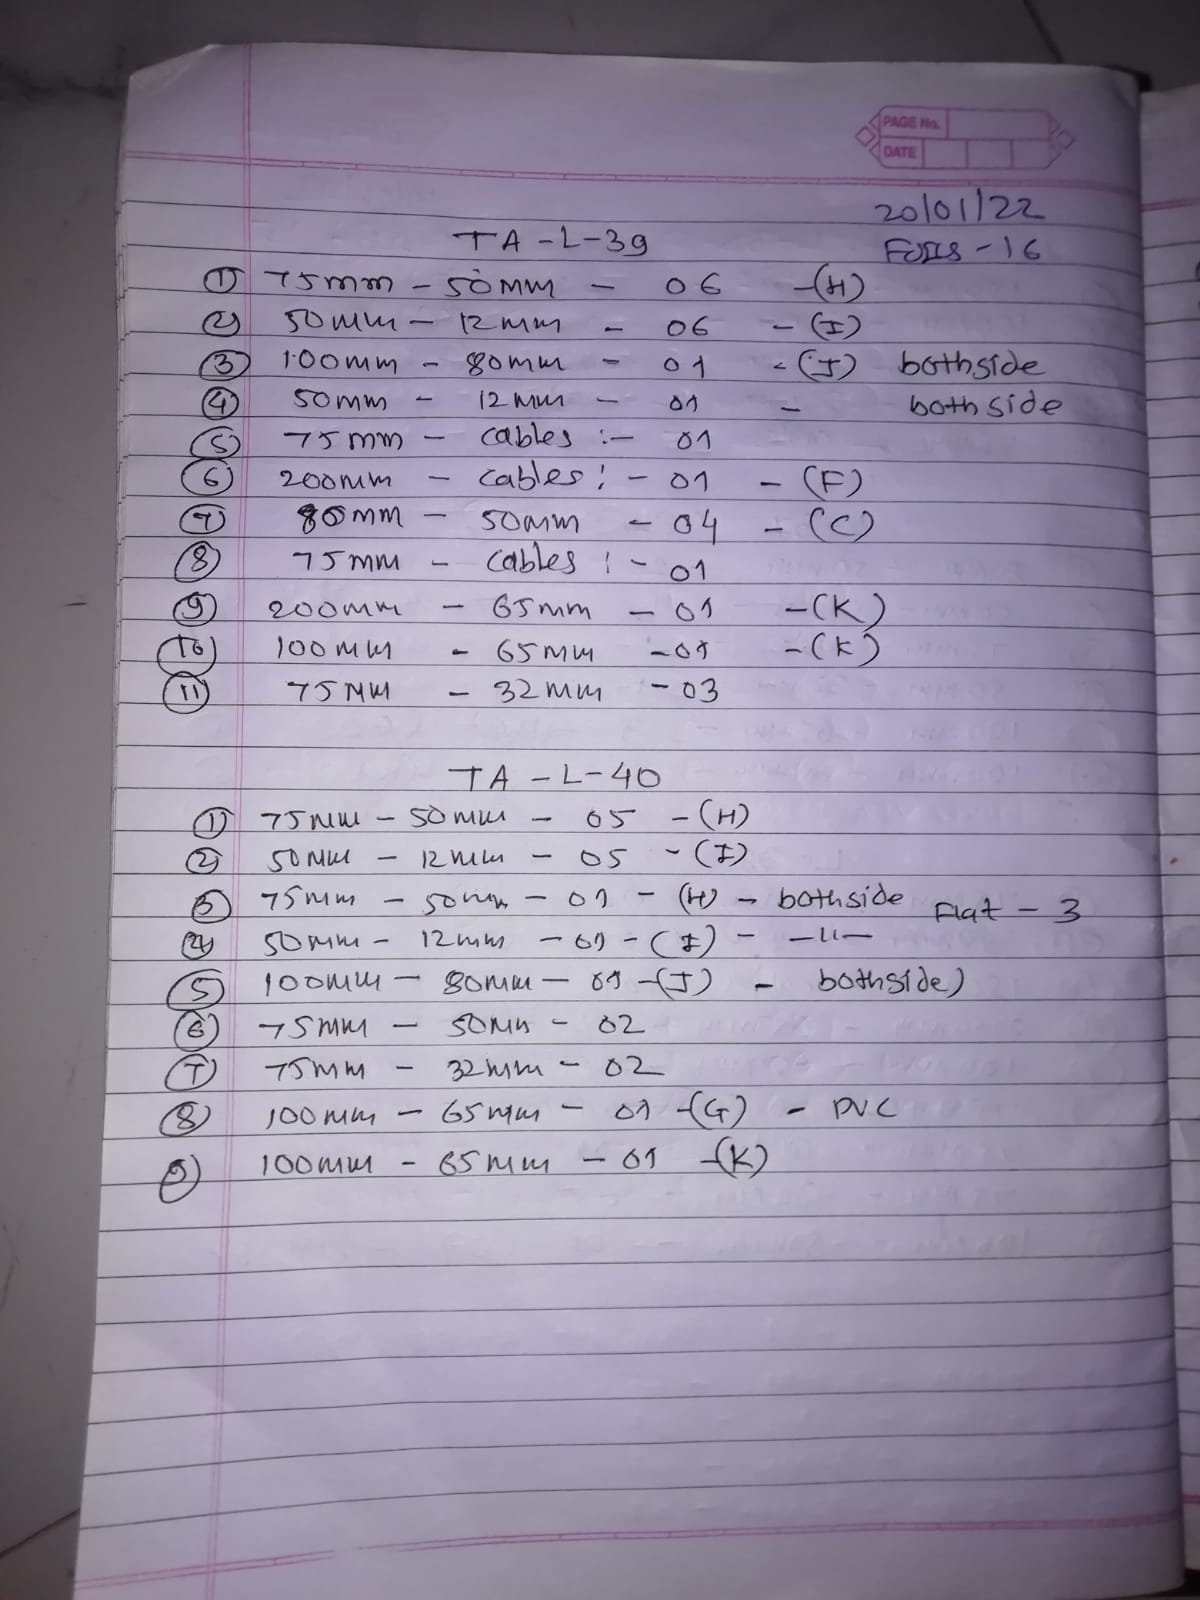 PAGE No.
DATE
20/01/22
TA-L-39
① 75mm - 50mm - 06 -(H)
② 50mm - 12mm - 06 -(I)
③ 100mm - 80mm - 01 -(J) bothside
④ 50mm - 12mm - 01 - bothside
⑤ 75mm - cables :- 01
⑥ 200mm - cables :- 01 - (F)
⑦ 80mm - 50mm - 04 - (C)
⑧ 75mm - cables :- 01
⑨ 200mm - 65mm - 01 -(K)
⑩ 100mm - 65mm - 01 -(K)
⑪ 75mm - 32mm - 03
TA-L-40
① 75mm - 50mm - 05 -(H)
② 50mm - 12mm - 05 -(I)
③ 75mm - 50mm - 01 - (H) - bothside Flat - 3
④ 50mm - 12mm - 01 - (I) - -11-
⑤ 100mm - 80mm - 01 -(J) - bothside)
⑥ 75mm - 50mm - 02
⑦ 75mm - 32mm - 02
⑧ 100mm - 65mm - 01 -(G) - PVC
⑨ 100mm - 65mm - 01 -(K)